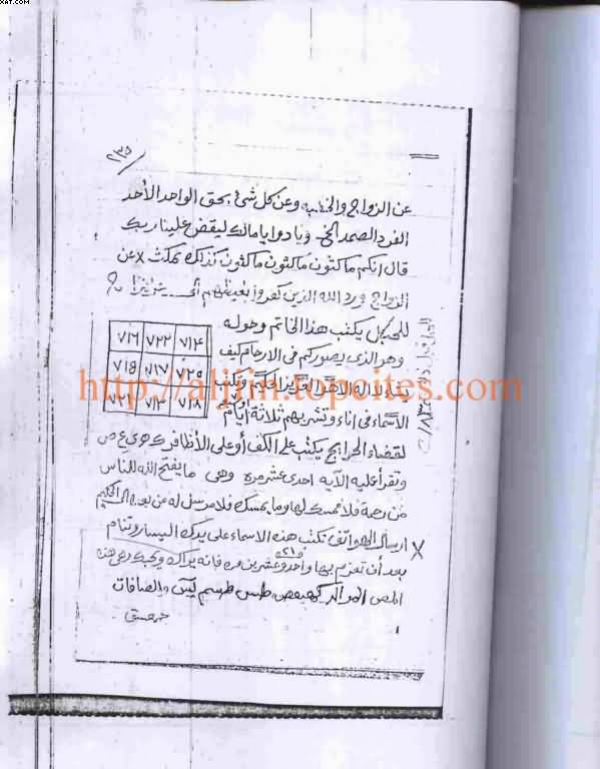 XAT.COM
٢٣٥
عن الزواج والخطبه وعن كل شئ بحق الواحد الأحد
الفرد الصمد الخ ونادوا يامالك ليقض علينا ربك
قال انكم ماكثون ماكثون ماكثون كذالك تمكث × عن
الزواج ورد الله الذين كفروا بغيظهم
يكتب هذا الخاتم وحوله
وهو الذى يصوركم فى الارحام كيف
يشاء لا اله الا هو العزيز الحكيم وتكتب
الأسماء فى اناء وتشربهم ثلاثة أيام
٧١٦ ٧٢٢ ٧١٤
٧١٥ ٧١٧ ٧٢٥
٧٢١ ٧١٣ ٧١٨
http://aljfin.topcites.com
لقضاء الحوايج يكتب على الكف أو على الأظافر ك ه ى ع ص
وتقرأ عليه الآيه احدى عشر مره وهى ما يفتح الله للناس
من رحمة فلا ممسك لها وما يمسك فلا مرسل له من بعده الحكيم
× ارسال الهواتف تكتب هذه الاسماء على يدك اليسار وتنام
بعد أن تعزم بها واحد وعشرين مره فانه يراك
المص المر الر كهيعص طس طسم يس والصافات
حمعسق